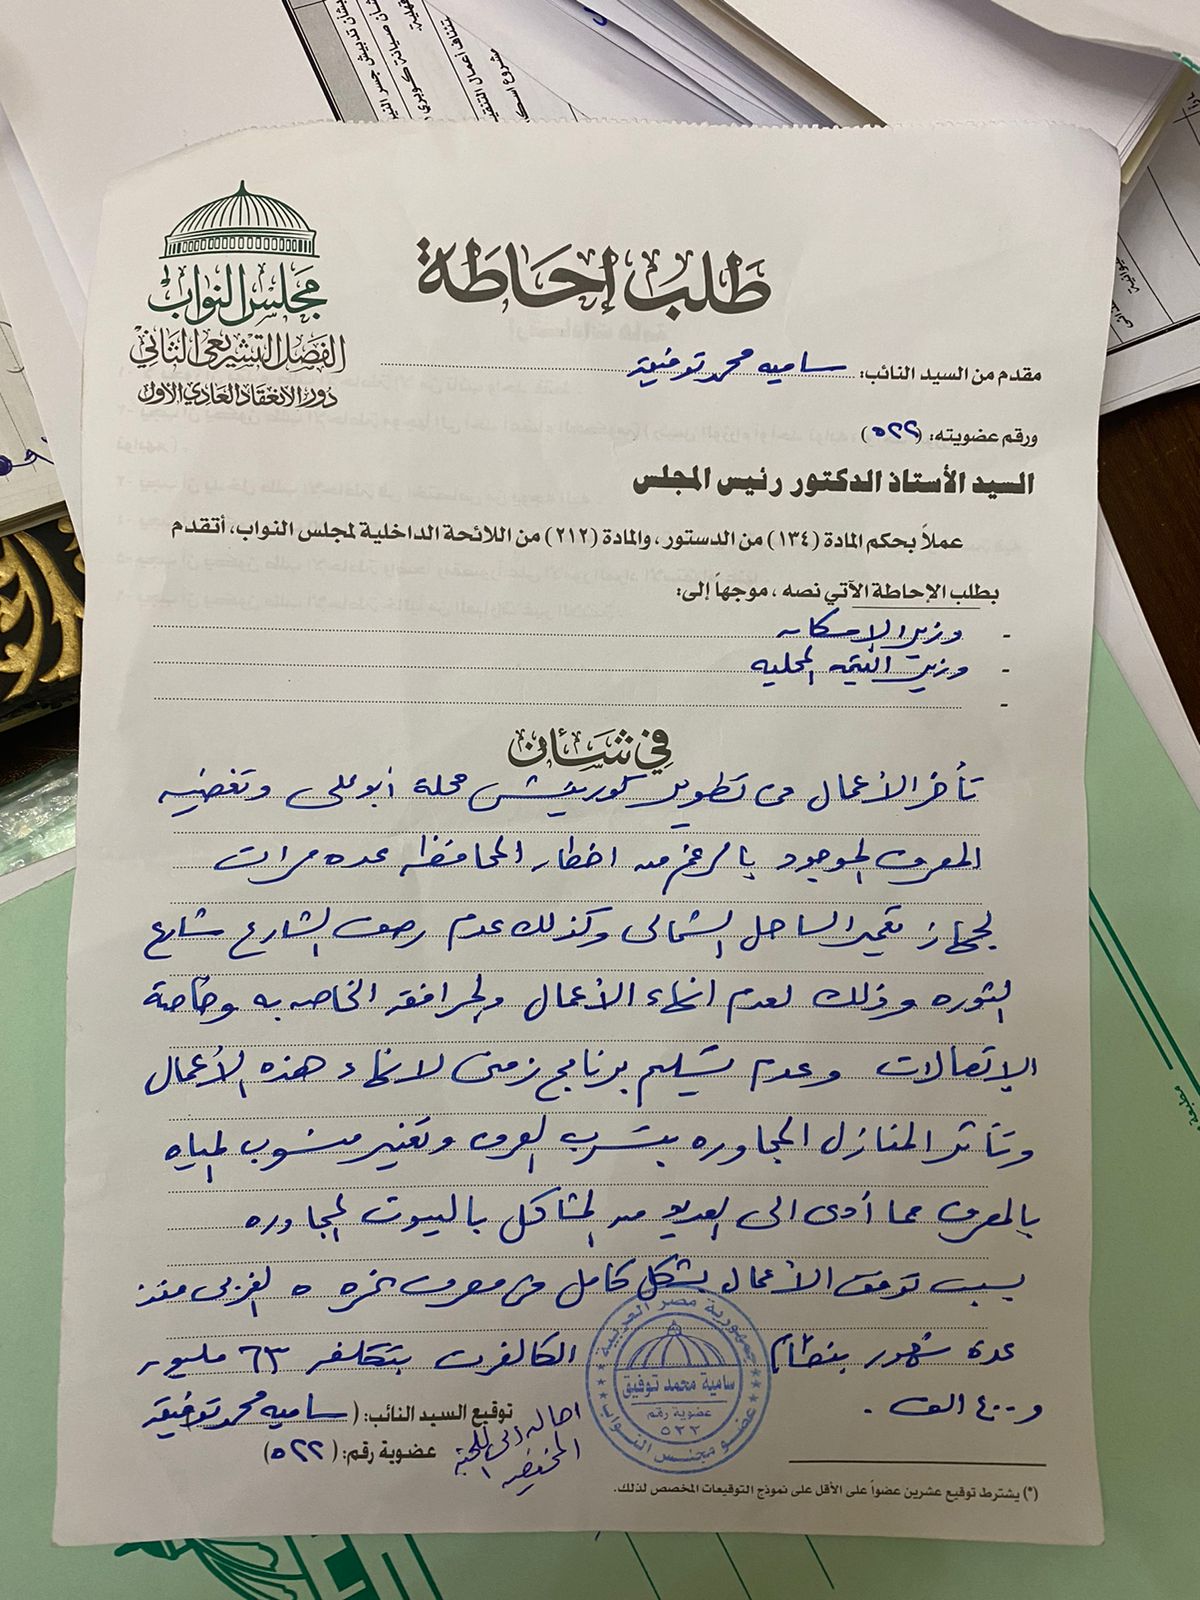 مجلس النواب
الفصل التشريعي الثاني
دور الانعقاد العادي الأول
طلب إحاطة
مقدم من السيد النائب: ساميه محمد توفيق
ورقم عضويته: (٥٢٢)
السيد الأستاذ الدكتور رئيس المجلس
عملاً بحكم المادة (١٣٤) من الدستور، والمادة (٢١٢) من اللائحة الداخلية لمجلس النواب، أتقدم
بطلب الإحاطة الآتي نصه، موجهاً إلى:
- وزير الإسكان
- وزير التنميه المحليه
-
في شأن
تأخر الأعمال فى تطوير كورنيش محلة أبو على وتغطيه
المصرف الموجود بالرغم من اخطار المحافظه عده مرات
لجهاز تعمير الساحل الشمالى وكذلك عدم رصف الشارع شارع
الثوره وذلك لعدم انهاء الأعمال والمرافق الخاصه به وخاصة
الإتصالات وعدم تسليم برنامج زمنى لانهاء هذه الأعمال
وتأثر المنازل المجاوره بتسرب الصرف وتغير منسوب المياه
بالمصرف مما أدى الى العديد من المشاكل بالبيوت المجاوره
بسبب توقف الأعمال بشكل كامل فى مصرف نمره ٥ الغربى منذ
عدة شهور بنظام الكالفرت بتكلفه ٦٣ مليون
و ٤٠٠ الف .
جمهورية مصر العربية
سامية محمد توفيق
عضوية رقم
٥٢٢
عضو مجلس النواب
توقيع السيد النائب: (ساميه محمد توفيق
عضوية رقم: (٥٢٢)
احاله الى اللجنة
المختصه
(*) يشترط توقيع عشرين عضواً على الأقل على نموذج التوقيعات المخصص لذلك.